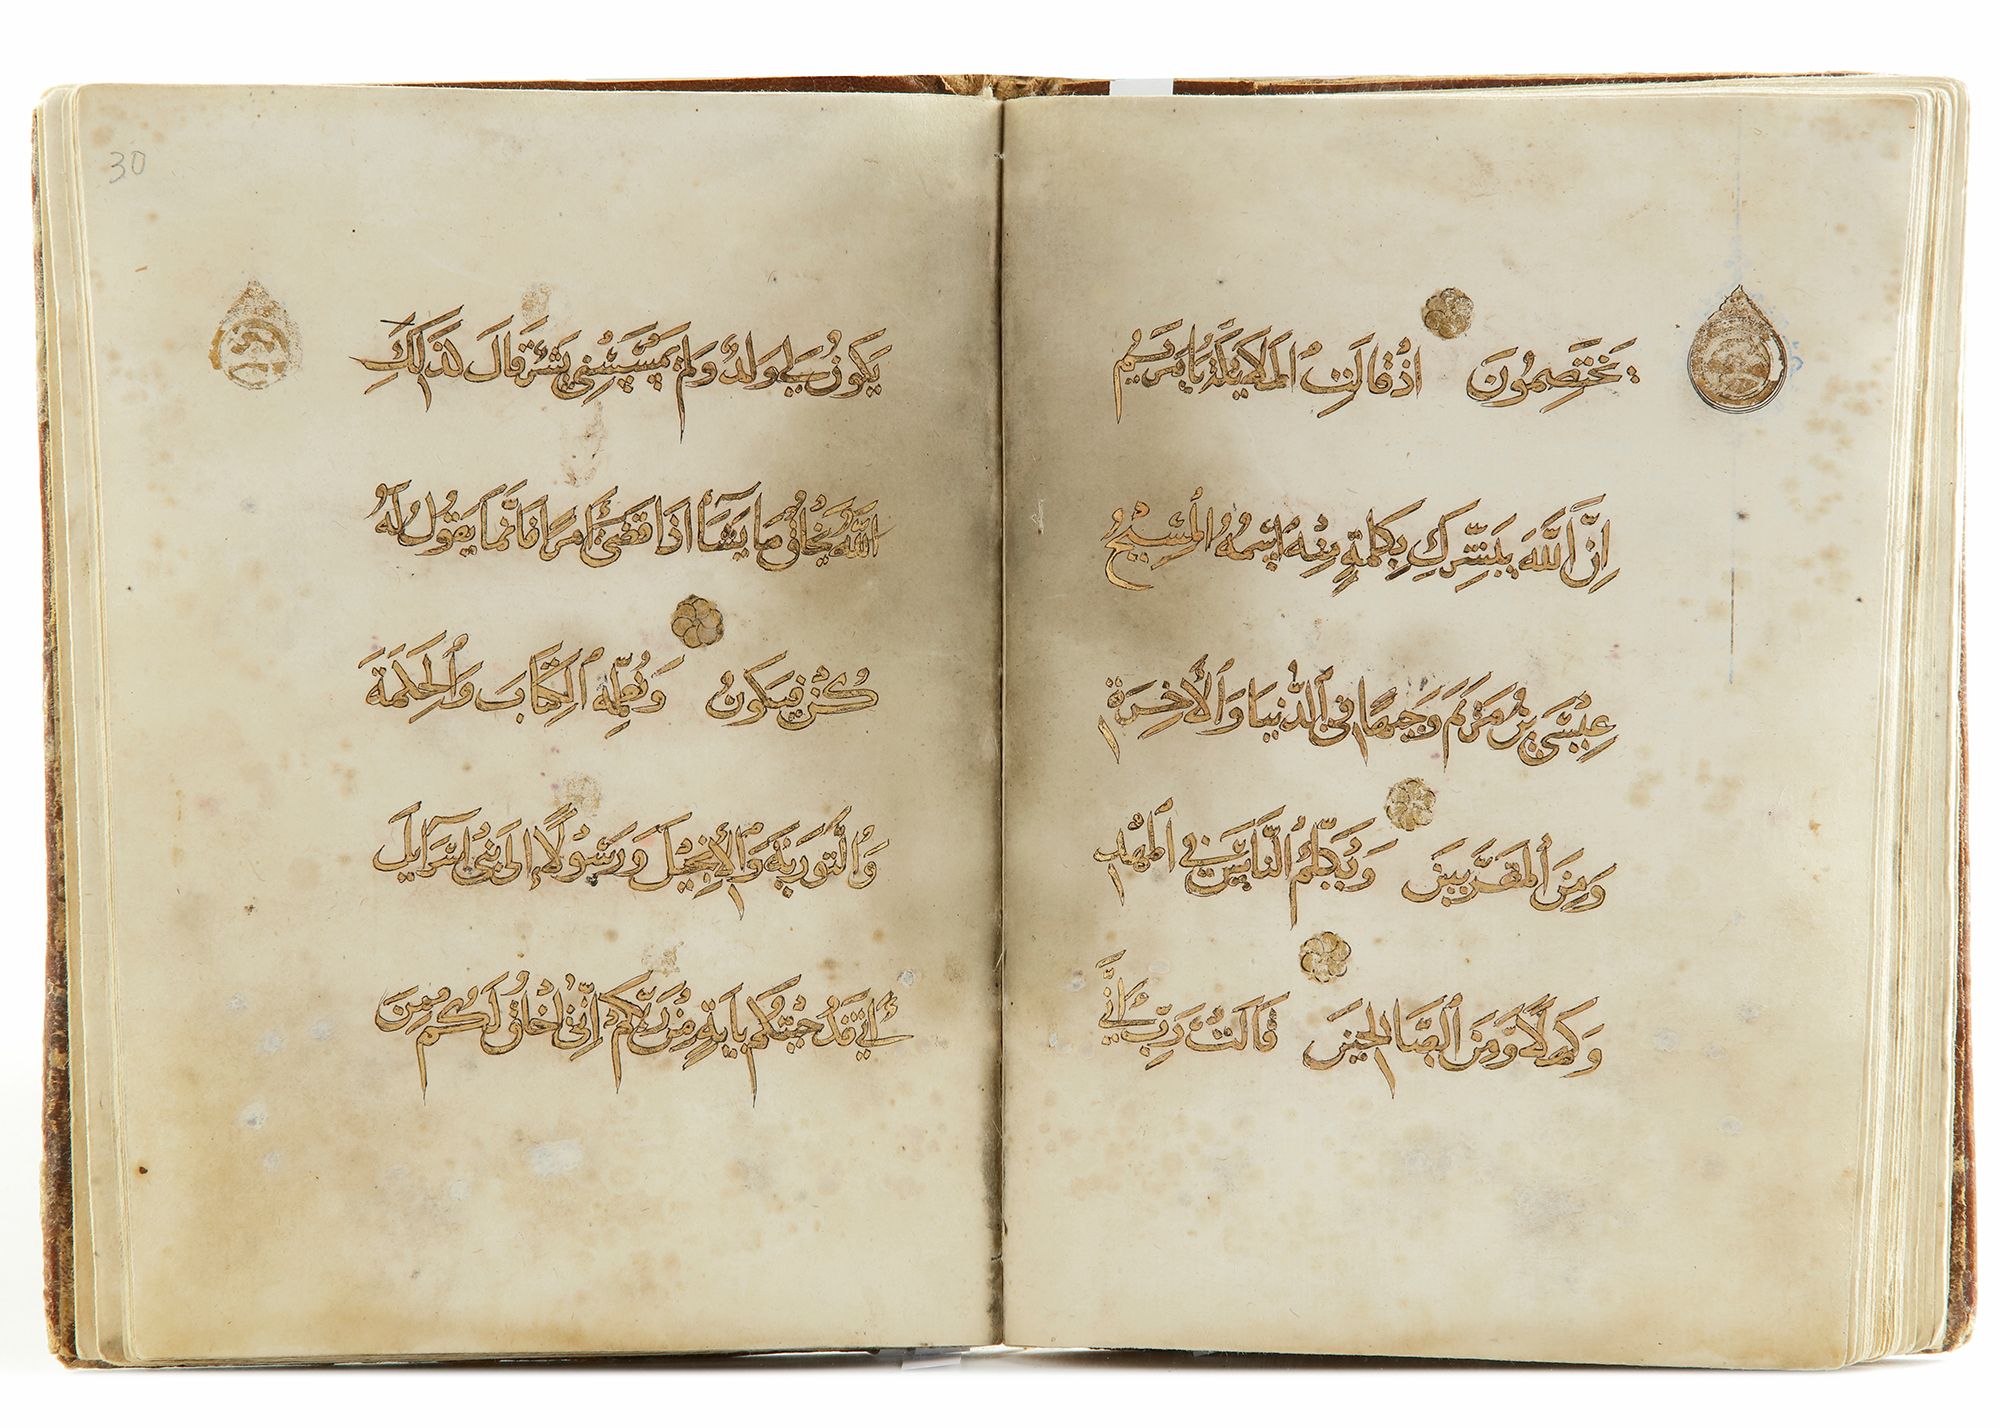 يَخْتَصِمُونَ اذْ قَالَتِ الْمَلَايِكَةُ يَا مَرْيَمُ
اِنَّ اللَّهَ يُبَشِّرُكِ بِكَلِمَةٍ مِنْهُ اسْمُهُ الْمَسِيحُ
عِيْسَى بْنُ مَرْيَمَ وَجِيهًا فِي الدُّنْيَا وَالْأَخِرَةِ
وَمِنَ الْمُقَرَّبِينَ وَيُكَلِّمُ النَّاسَ فِي الْمَهْدِ
وَكَهْلًا وَمِنَ الصَّالِحِينَ قَالَتْ رَبِّ أَنَّى
يَكُونُ لِي وَلَدٌ وَلَمْ يَمْسَسْنِي بَشَرٌ قَالَ كَذَلِكِ
اللَّهُ يَخْلُقُ مَا يَشَآءُ اذَا قَضَى أَمْرًا فَانَّمَا يَقُولُ لَهُ
كُنْ فَيَكُونُ وَيُعَلِّمُهُ الْكِتَابَ وَالْحِكْمَةَ
وَالتَّوْرَيةَ وَالْإِنْجِيْلَ وَرَسُوْلًا إِلَى بَنِي اسْرَآئِيلَ
أَنِّي قَدْ جِئْتُكُمْ بِآيَةٍ مِنْ رَبِّكُمْ اِنِّي أَخْلُقُ لَكُمْ مِنَ
30